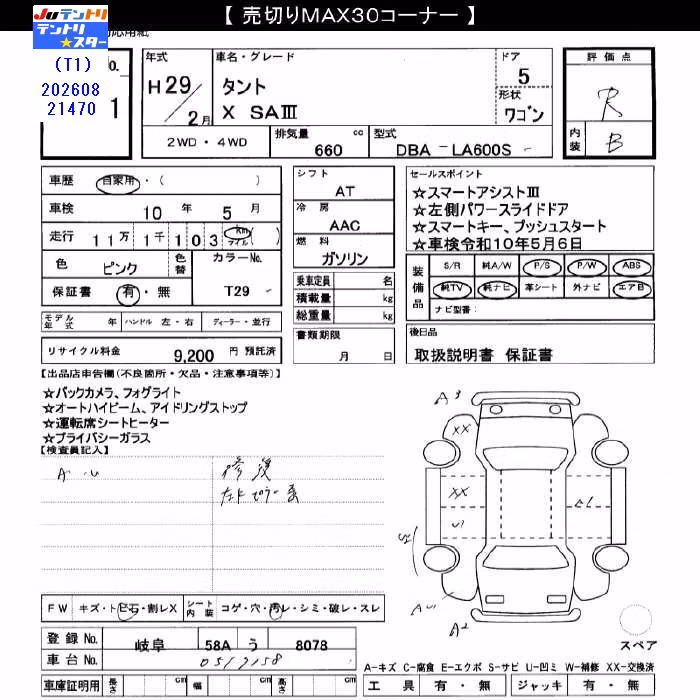 【 売切りMAX30コーナー 】
Juテントリ
テントリ★スター
応用紙
(T1)
202608
21470
No.
1
年式
H29/2月
車名・グレード
タント
X SAⅢ
ドア
5
形状
ワゴン
2WD・4WD
排気量 cc
660
型式
DBA － LA600S
評価点
R
内装
B
車歴 自家用・( )
車検 10 年 5 月
走行 11万1千103 Km マイル ( )
色 ピンク 色替 カラーNo.
保証書 有・無 T29
モデル年式 年 ハンドル 左・右 ディーラー・並行
リサイクル料金 9,200 円 預託済
シフト
AT
冷房
AAC
燃料
ガソリン
乗車定員 名
積載量 kg
総重量 kg
書類期限
月 日
セールスポイント
☆スマートアシストⅢ
☆左側パワースライドドア
☆スマートキー、プッシュスタート
★車検令和10年5月6日
装備品
S/R 純A/W P/S P/W ABS
純TV 純ナビ 革シート 外ナビ エアB
ナビ型番:
後日品
取扱説明書 保証書
【出品店申告欄(不良箇所・欠品・注意事項等)】
☆バックカメラ、フォグライト
☆オートハイビーム、アイドリングストップ
☆運転席シートヒーター
☆プライバシーガラス
【検査員記入】
A・U
修復
FW キズ・トビ石・割レX シート内装 コゲ・穴・汚レ・シミ・破レ・スレ
登録No. 岐阜 58A う 8078
車台No. 0517158
車庫証明用 長さ cm 幅 cm 高さ cm
A3
XX
XX
A2
スペア
A-キズ C-腐食 E-エクボ S-サビ U-凹ミ W-補修 XX-交換済
工具 有・無 ジャッキ 有・無